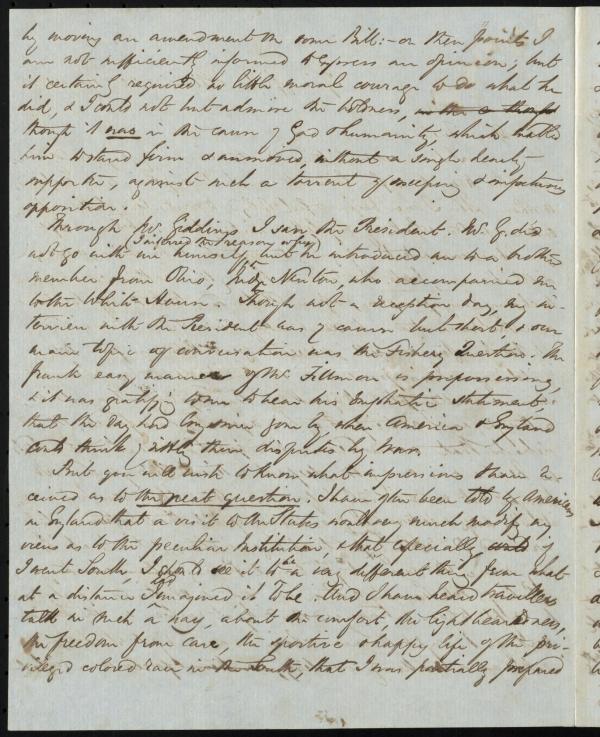 by moving an amendment on some Bill: - on these points I
am not sufficiently informed to express an opinion; but
it certainly required no little moral courage to do what he
did, & I could not but admire the boldness,
though it was in the cause of God & humanity, which enabled
him to stand firm & unmoved, without a single hearty
supporter, against such a torrent of sweeping & impetuous
opposition.
Through Mr. Giddings I saw the President. Mr. G. did
not go with me himself, but he introduced me to a brother
member from Ohio, Judge Newton, who accompanied me
to the White House. Though not a reception day, my in-
terview with the President was of course but short, & our
main topic of conversation was the Fishery Question. The
frank easy manner of Mr. Fillmore is prepossessing,
& it was gratifying to me to hear his emphatic statement,
that the day had long since gone by when America & England
could think of settling their disputes by war.
But you will wish to know what impressions I have re-
ceived as to the great question. I have often been told by Americans
in England that a visit to the States would very much modify my
views as to the peculiar Institution, & that especially, if
I went South, I should see it to be a very different thing from what
at a distance I had imagined it to be. And I have heard travellers
talk in such a way, about the comfort, the lightheartedness,
the freedom from care, the sportive & happy life of the pri-
vileged colored race in the South, that I was partially prepared